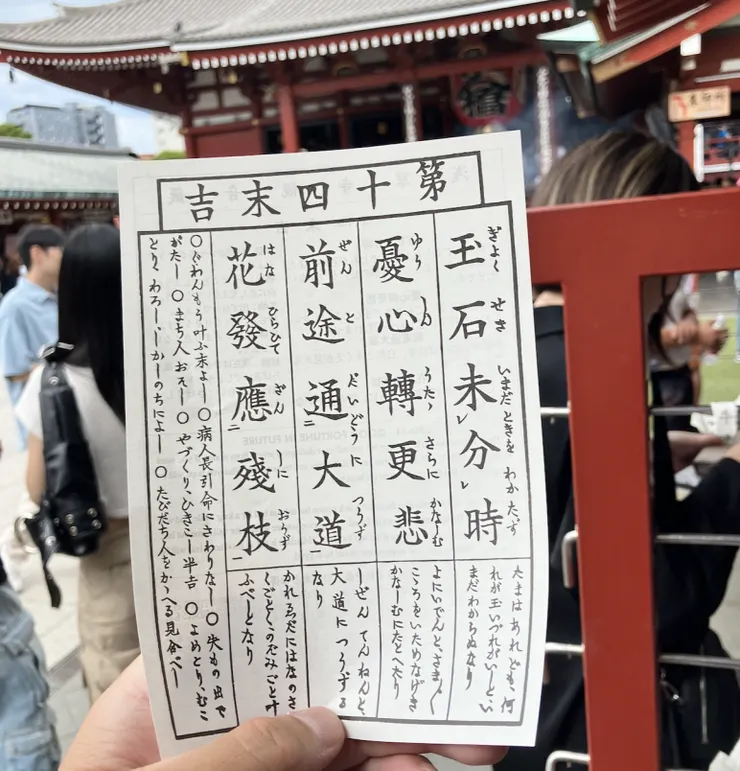 第十四末吉
ぎよく せき いまだときを わかたず
玉石未レ分レ時
たまはあれども、何
れが玉いづれがいしとい
まだわからぬなり
ゆうしん うたゝ さらに かなしむ
憂心轉更悲
よにいでんと、さま〲
こころをいためなげき
かなしむにたとへたり
ぜんと だいどうに つうず
前途通二大道一
しぜんてんねんと、
大道につうずる
なり
はな ひらひて ざんしに おうず
花發應二殘枝一
かれゑだにはなのさ
くごとくのぞみごと叶
ふべしとなり
○ぐわんもう叶ふ末よし ○病人長引命にさわりなし ○失もの出で
がたし ○まち人おそし ○やづくり、ひきこし半吉 ○よめとり、むこ
とり、わろし、しかしのちによし ○たびだち人をかゝへる見合べし